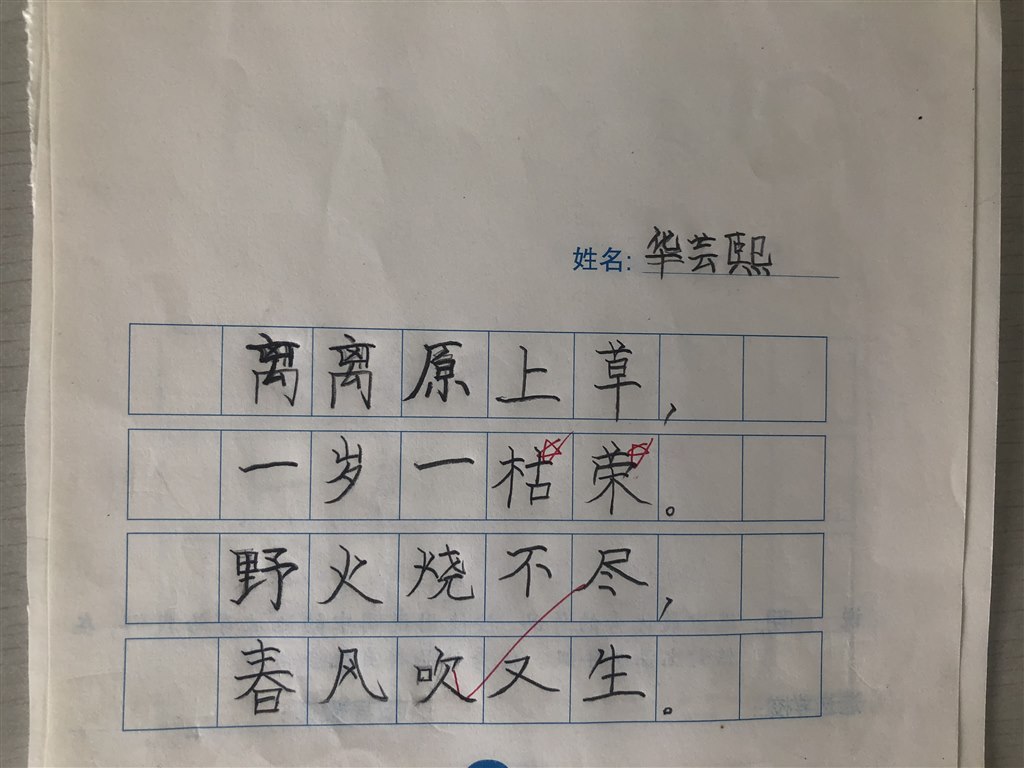 姓名: 华芸熙
离离原上草，
一岁一枯荣。
野火烧不尽，
春风吹又生。